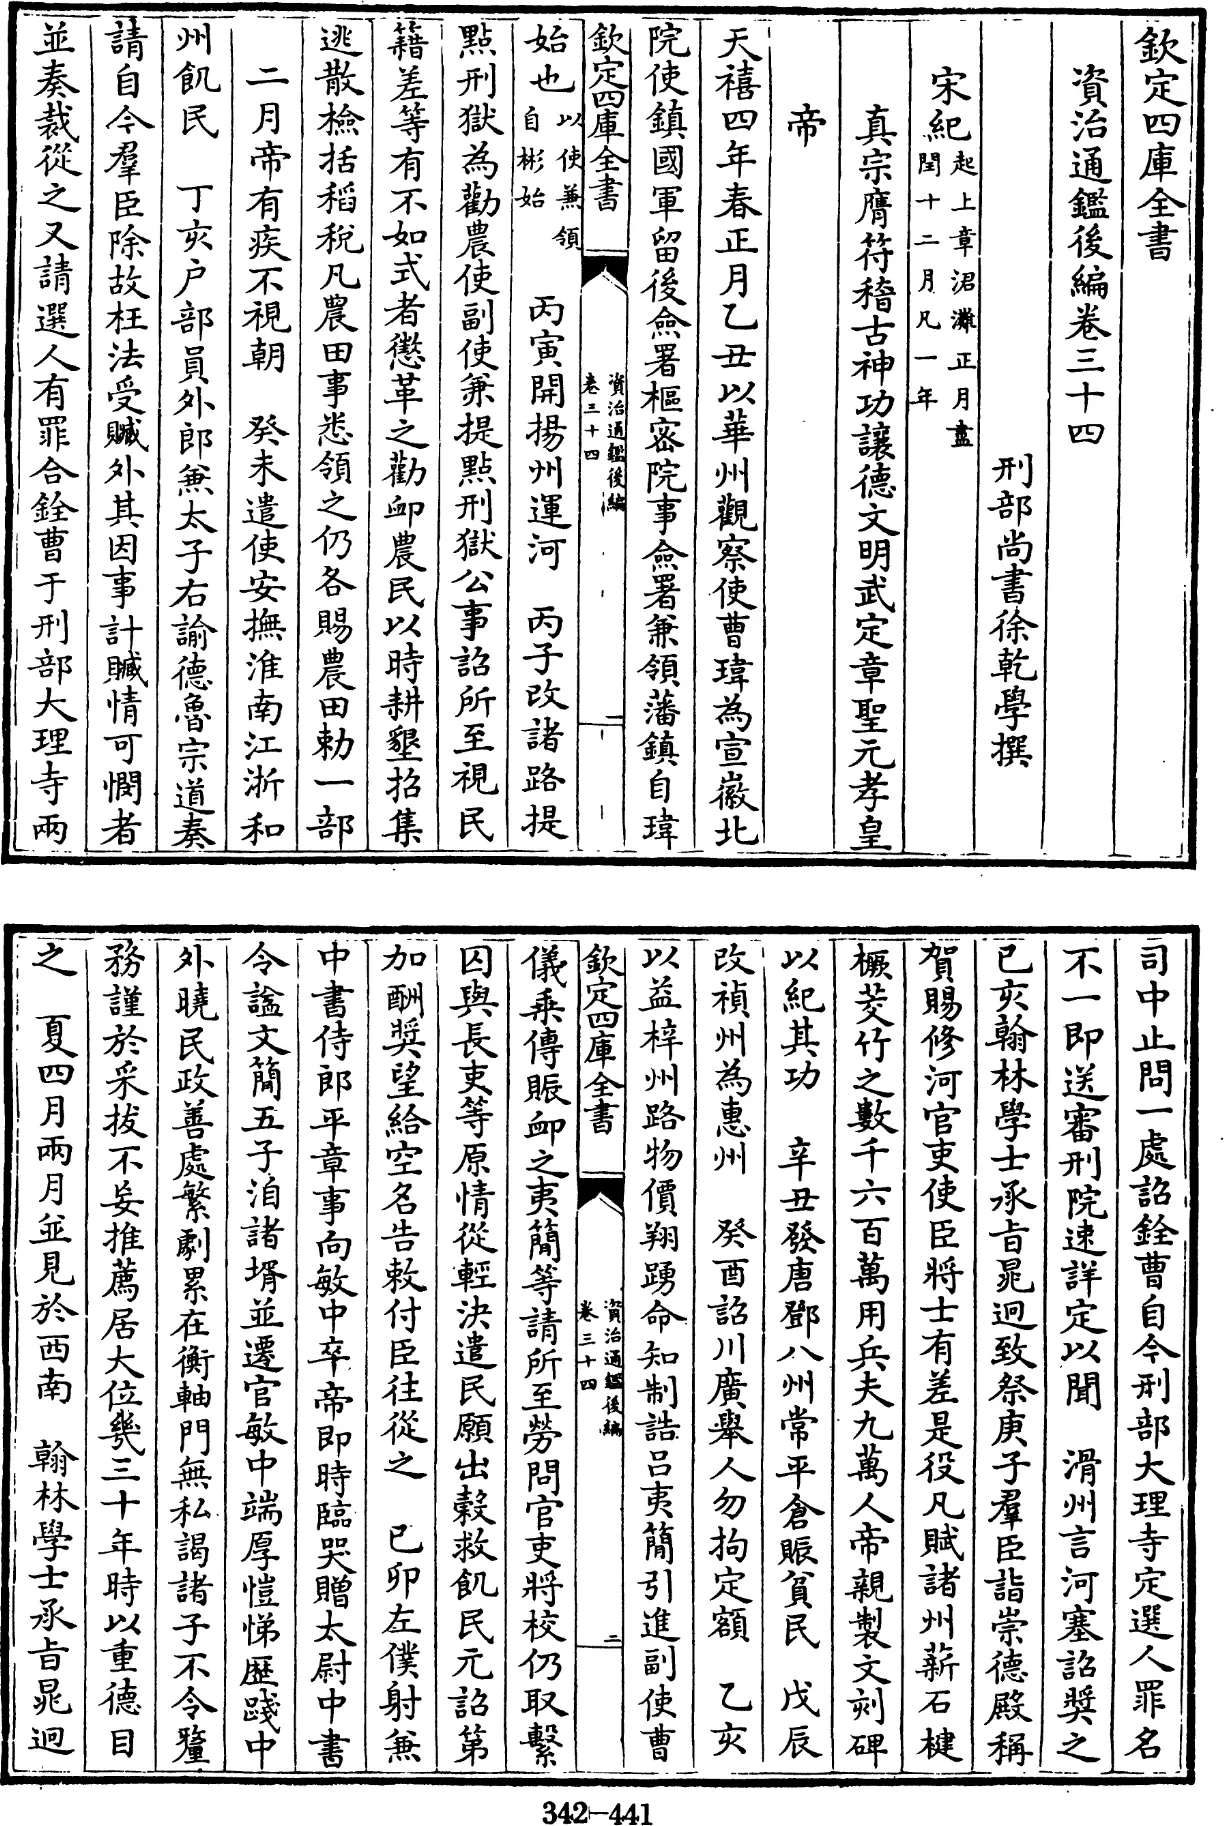 欽定四庫全書
資治通鑑後編卷三十四
刑部尚書徐乾學撰
宋紀起上章涒灘正月盡
閏十二月凡一年
真宗膺符稽古神功讓德文明武定章聖元孝皇
帝
天禧四年春正月乙丑以華州觀察使曹瑋為宣徽北
院使鎮國軍留後僉署樞密院事僉署兼領藩鎮自瑋
欽定四庫全書
資治通鑑後編
卷三十四
一
始也以使兼領
自彬始
丙寅開揚州運河　丙子改諸路提
點刑獄為勸農使副使兼提點刑獄公事詔所至視民
籍差等有不如式者懲革之勸䘏農民以時耕墾招集
逃散檢括稻稅凡農田事悉領之仍各賜農田勅一部
二月帝有疾不視朝　癸未遣使安撫淮南江浙和
州飢民　丁亥户部員外郎兼太子右諭德魯宗道奏
請自今羣臣除故枉法受贓外其因事計贓情可憫者
並奏裁從之又請選人有罪合銓曹于刑部大理寺兩
司中止問一處詔銓曹自今刑部大理寺定選人罪名
不一即送審刑院速詳定以聞　滑州言河塞詔奬之
己亥翰林學士承旨晁迥致祭庚子羣臣詣崇德殿稱
賀賜修河官吏使臣將士有差是役凡賦諸州薪石楗
橛茭竹之數千六百萬用兵夫九萬人帝親製文刻碑
以紀其功　辛丑發唐鄧八州常平倉賑貧民　戊辰
改禎州為惠州　癸酉詔川廣舉人勿拘定額　乙亥
以益梓州路物價翔踴命知制誥呂夷簡引進副使曹
欽定四庫全書
資治通鑑後編
卷三十四
二
儀乘傳賑䘏之夷簡等請所至勞問官吏將校仍取繫
囚與長吏等原情從輕決遣民願出穀救飢民元詔第
加酬奬望給空名告敕付臣往從之　己卯左僕射兼
中書侍郎平章事向敏中卒帝即時臨哭贈太尉中書
令諡文簡五子洎諸壻並遷官敏中端厚愷悌歷踐中
外曉民政善處繁劇累在衡軸門無私謁諸子不令釐
務謹於采拔不妄推薦居大位幾三十年時以重德目
之　夏四月兩月並見於西南　翰林學士承旨晁迥
342-441